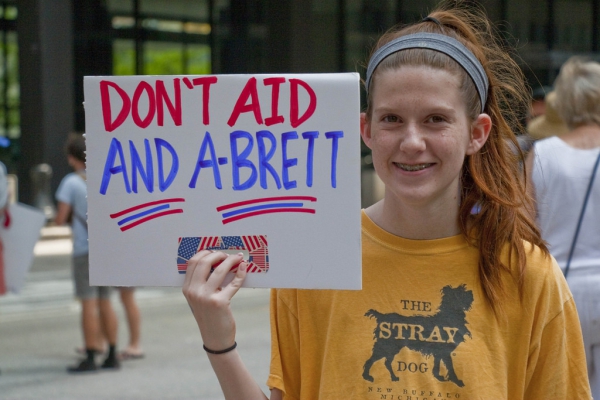 DON'T AID
AND A-BRETT
THE
STRAY
DOG
NEW BUFFALO
MICHIGAN